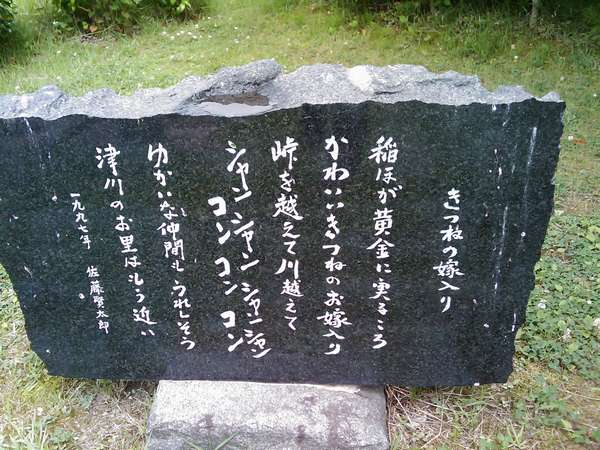 きつねの嫁入り
稲ほが黄金に実るころ
かわいいきつねのお嫁入り
峠を越えて川越えて
シャン シャン シャンシャン
コン コン コン
ゆかいな仲間もうれしそう
津川のお里はもう近い
一九九七年 佐藤賢太郎